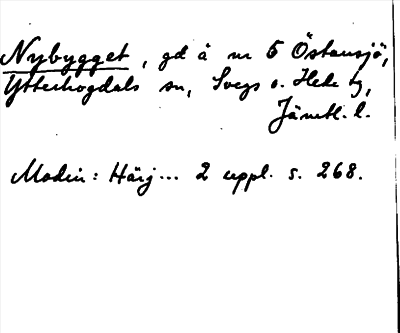 Nybygget, gd å nr 5 Östansjö,
Ytterhogdals sn, Svegs o. Hede tg,
Jämtl. l.
Modin: Härj... 2 uppl. s. 268.